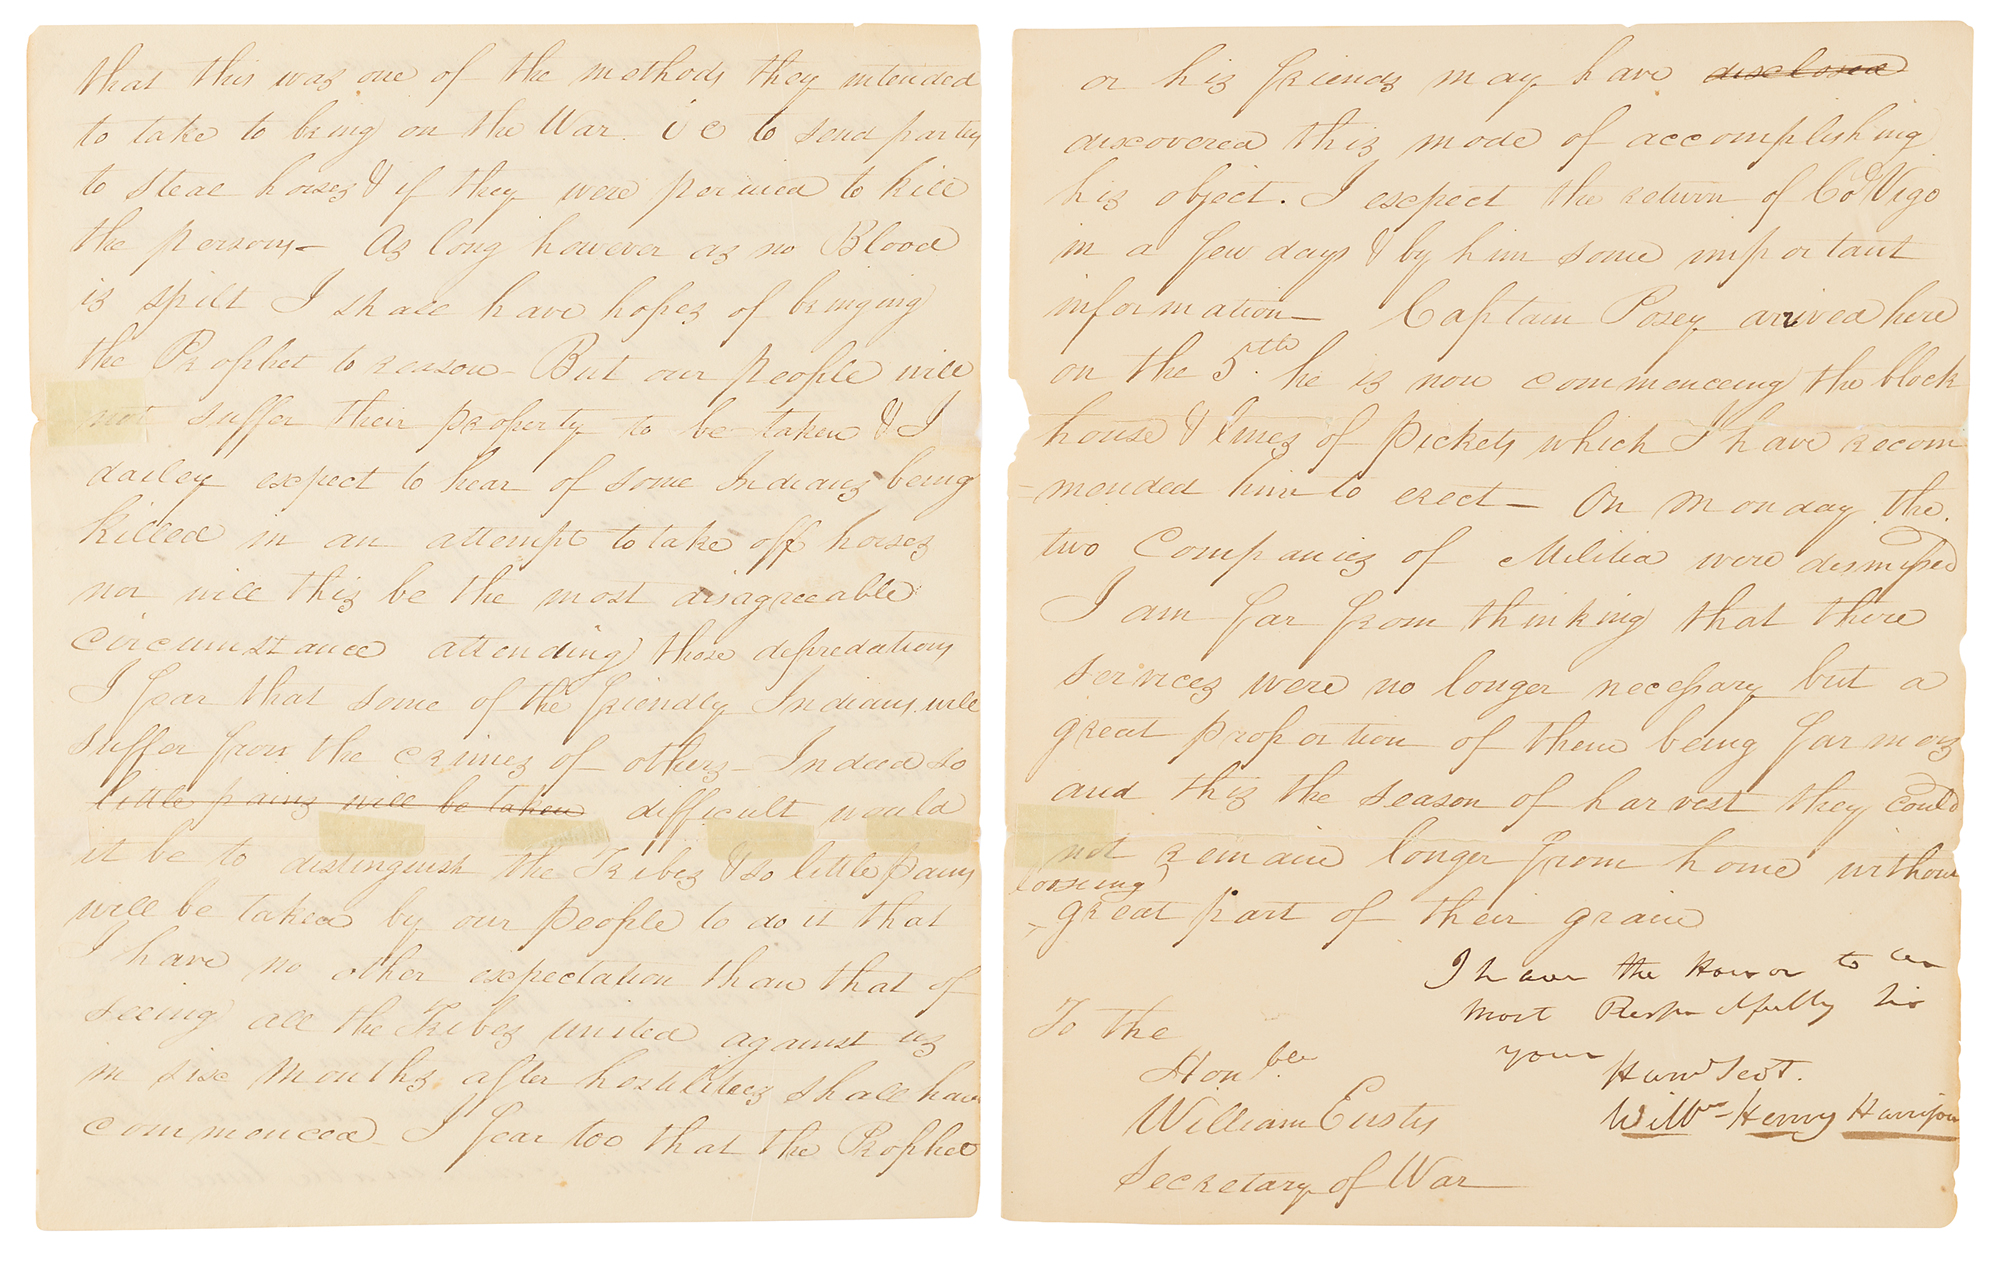 that this was one of the methods they intended
to take to bring on the War. i e to send parties
to steal horses & if they were persued to kill
the persons – As long however as no Blood
is spilt I shall have hopes of bringing
the Prophet to reason – But our people will
not suffer their property to be taken & I
dailey expect to hear of some Indians being
killed in an attempt to take off horses
nor will this be the most disagreeable
circumstance attending those depredations
I fear that some of the friendly Indians will
suffer from the crimes of others – Indeed so
little pains will be taken difficult would
it be to distinguish the Tribes & so little pains
will be taken by our people to do it that
I have no other expectation than that of
seeing all the Tribes united against us
in six Months after hostilities shall have
commenced – I fear too that the Prophet
or his friends may have disclosed
discovered this mode of accomplishing
his object. I expect the return of Col Vigo
in a few days & by him some important
information – Captain Posey arrived here
on the 5th. he is now commenceing the block
house & lines of pickets which I have recom
mended him to erect – On Monday the
two Companies of Militia were dismissed
I am far from thinking that there
services were no longer necessary but a
great proportion of them being farmers
and this the season of harvest they could
not remain longer from home without
loosing
great part of their grain
I have the Honor to be
most Respectfully Sir
your
Humb Servt.
Willm Henry Harrison
To the
Honble
William Eustis
Secretary of War